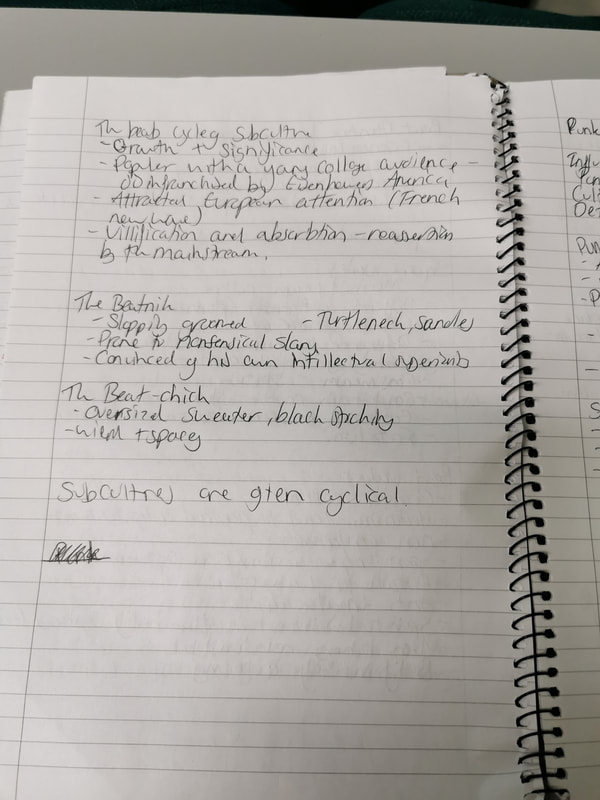 The beat cycle of subculture
- Growth + significance
- Popular with a young college audience -
disinfranchised by Eisenhowers America
- Attracted European attention (French
new wave)
- Villification and absorbtion - reassertion
by the mainstream.
The Beatnik
- Sloppily groomed - Turtleneck, sandles
- Prone to nonsensical slang
- Convinced of his own intillectual superiority
The Beat-chick
- oversized sweater, black stocking
- wierd + spacey
Subcultures are often cyclical.
Punk
Influ